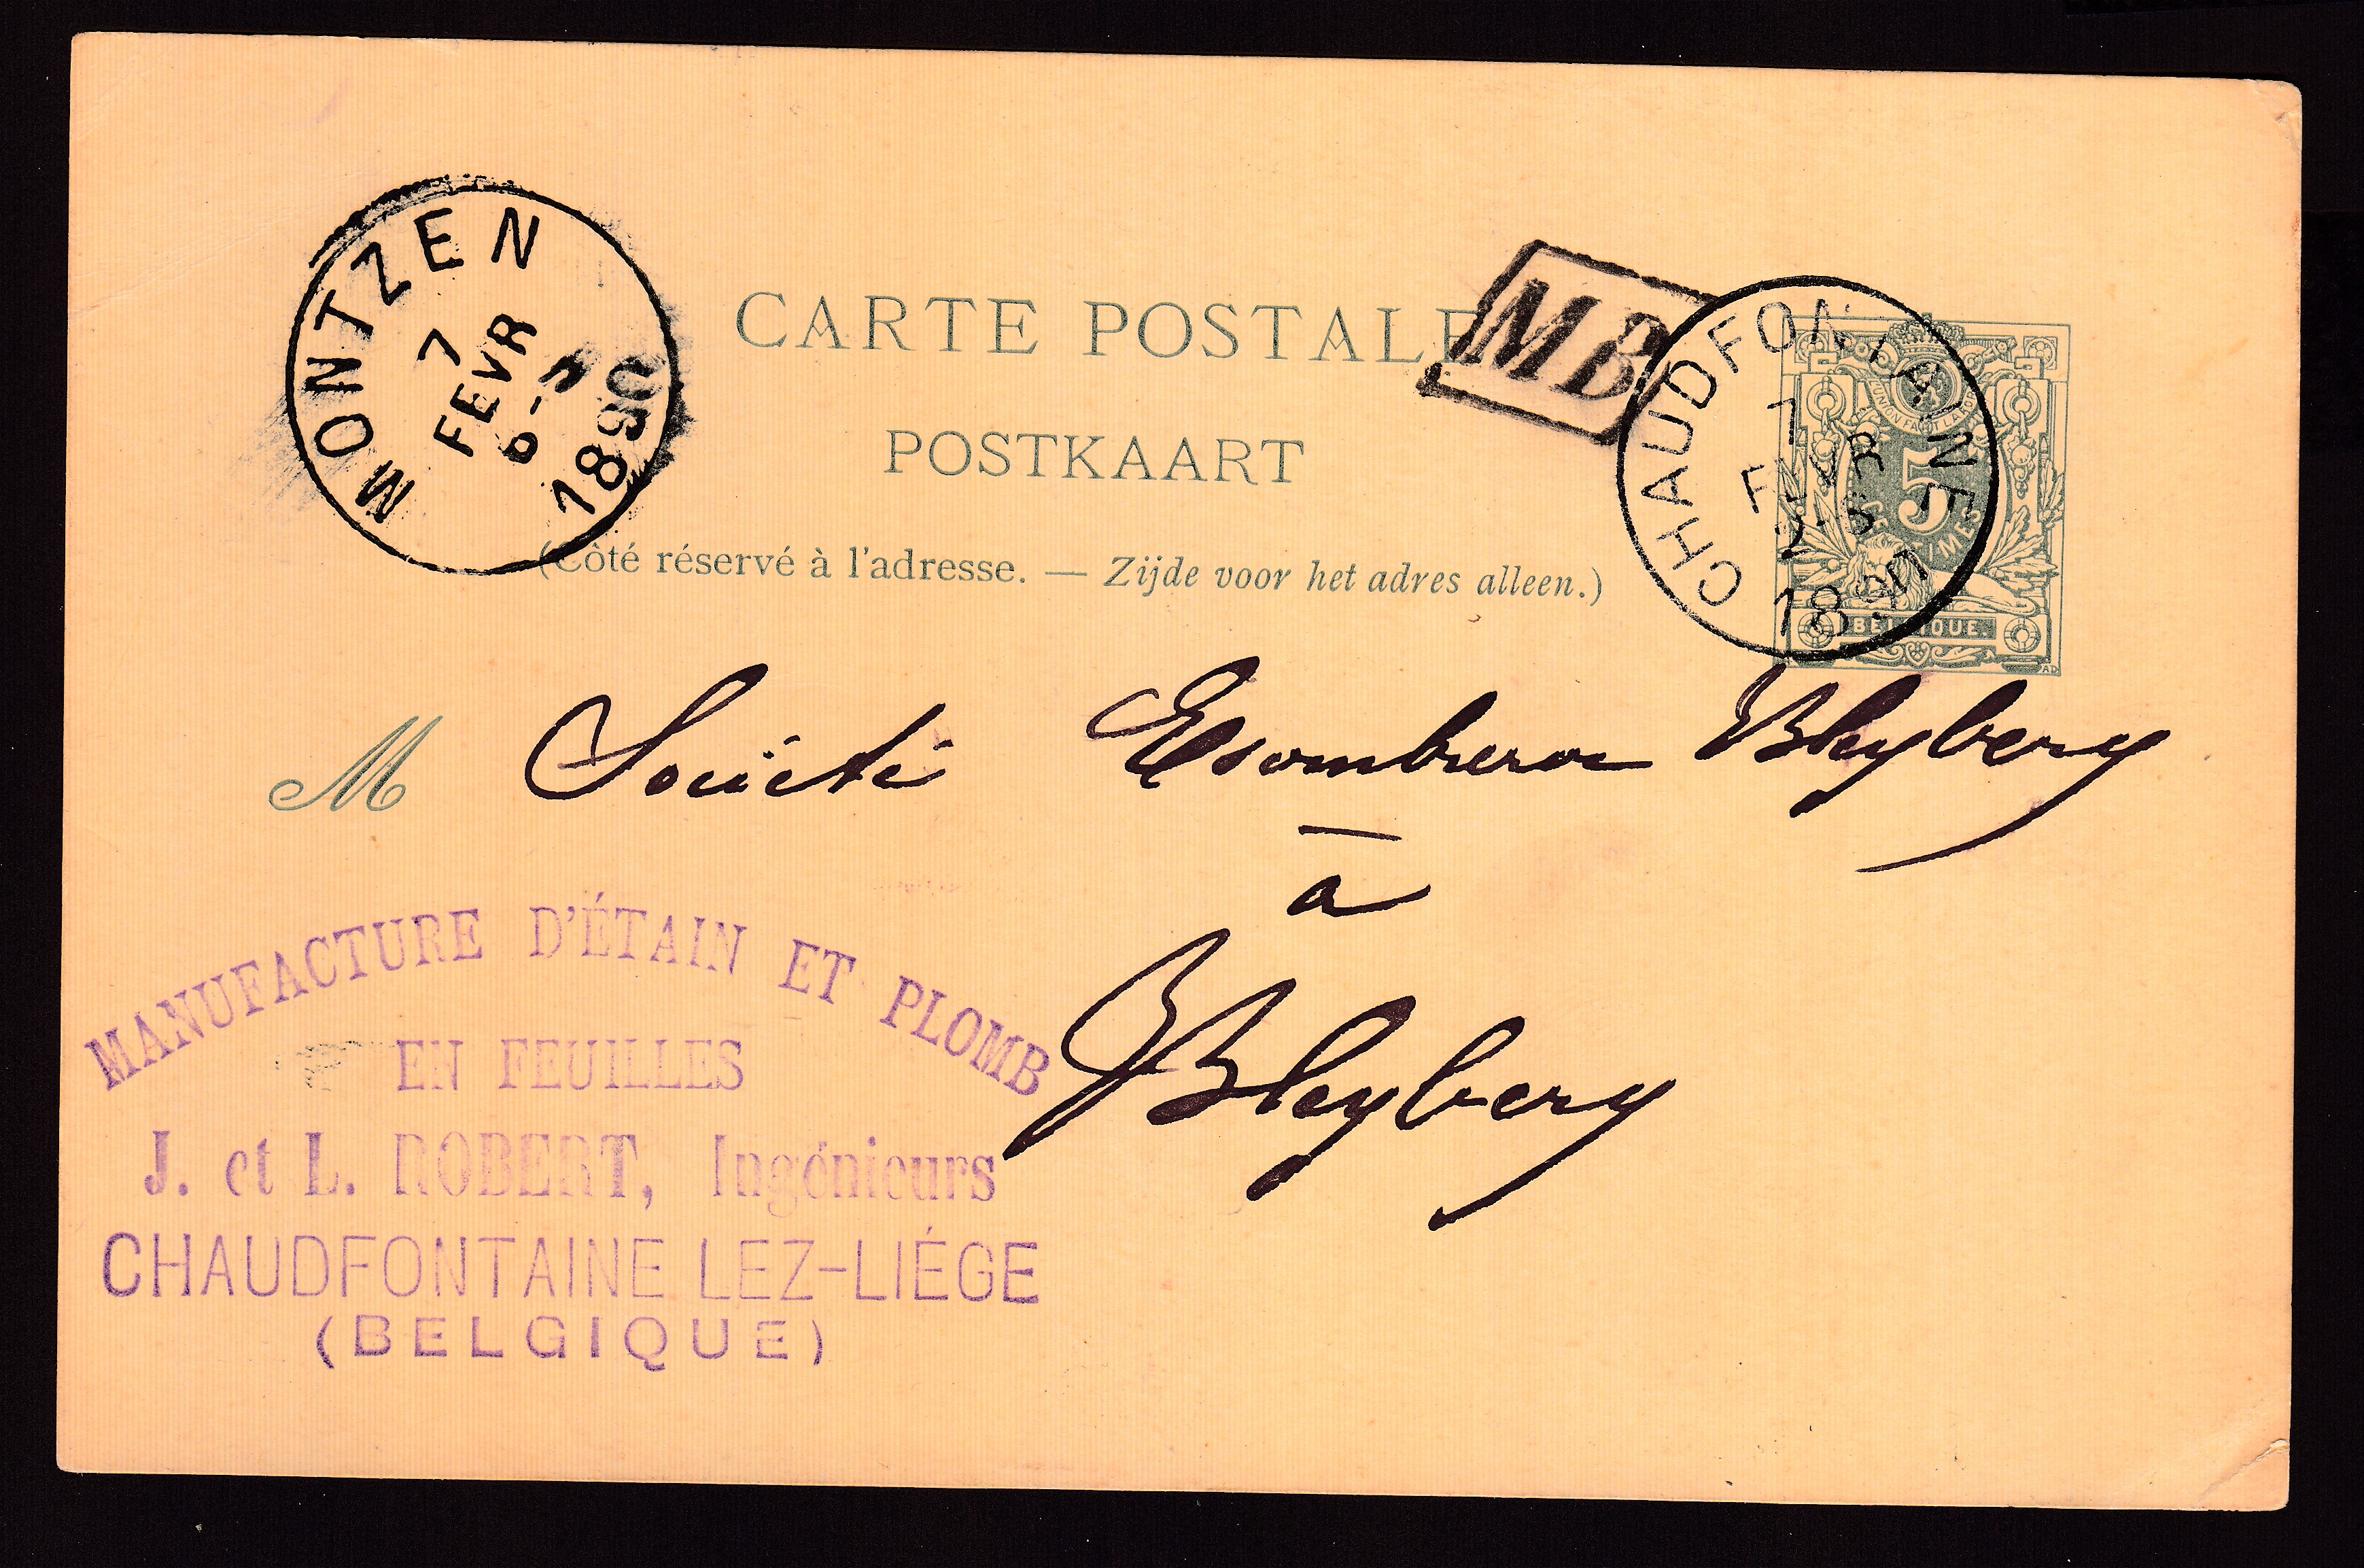 MONTZEN
7
FEVR
6-
1890
CARTE POSTALE
POSTKAART
(Côté réservé à l'adresse. — Zijde voor het adres alleen.)
MB
CHAUDFONTAINE
7
1890
UNION FAIT LA
5
CENTIMES
BELGIQUE.
AD
M Société Escombrera Bleyberg
à
Bleyberg
MANUFACTURE D'ÉTAIN ET PLOMB
EN FEUILLES
J. et L. ROBERT, Ingénieurs
CHAUDFONTAINE LEZ-LIÉGE
(BELGIQUE)